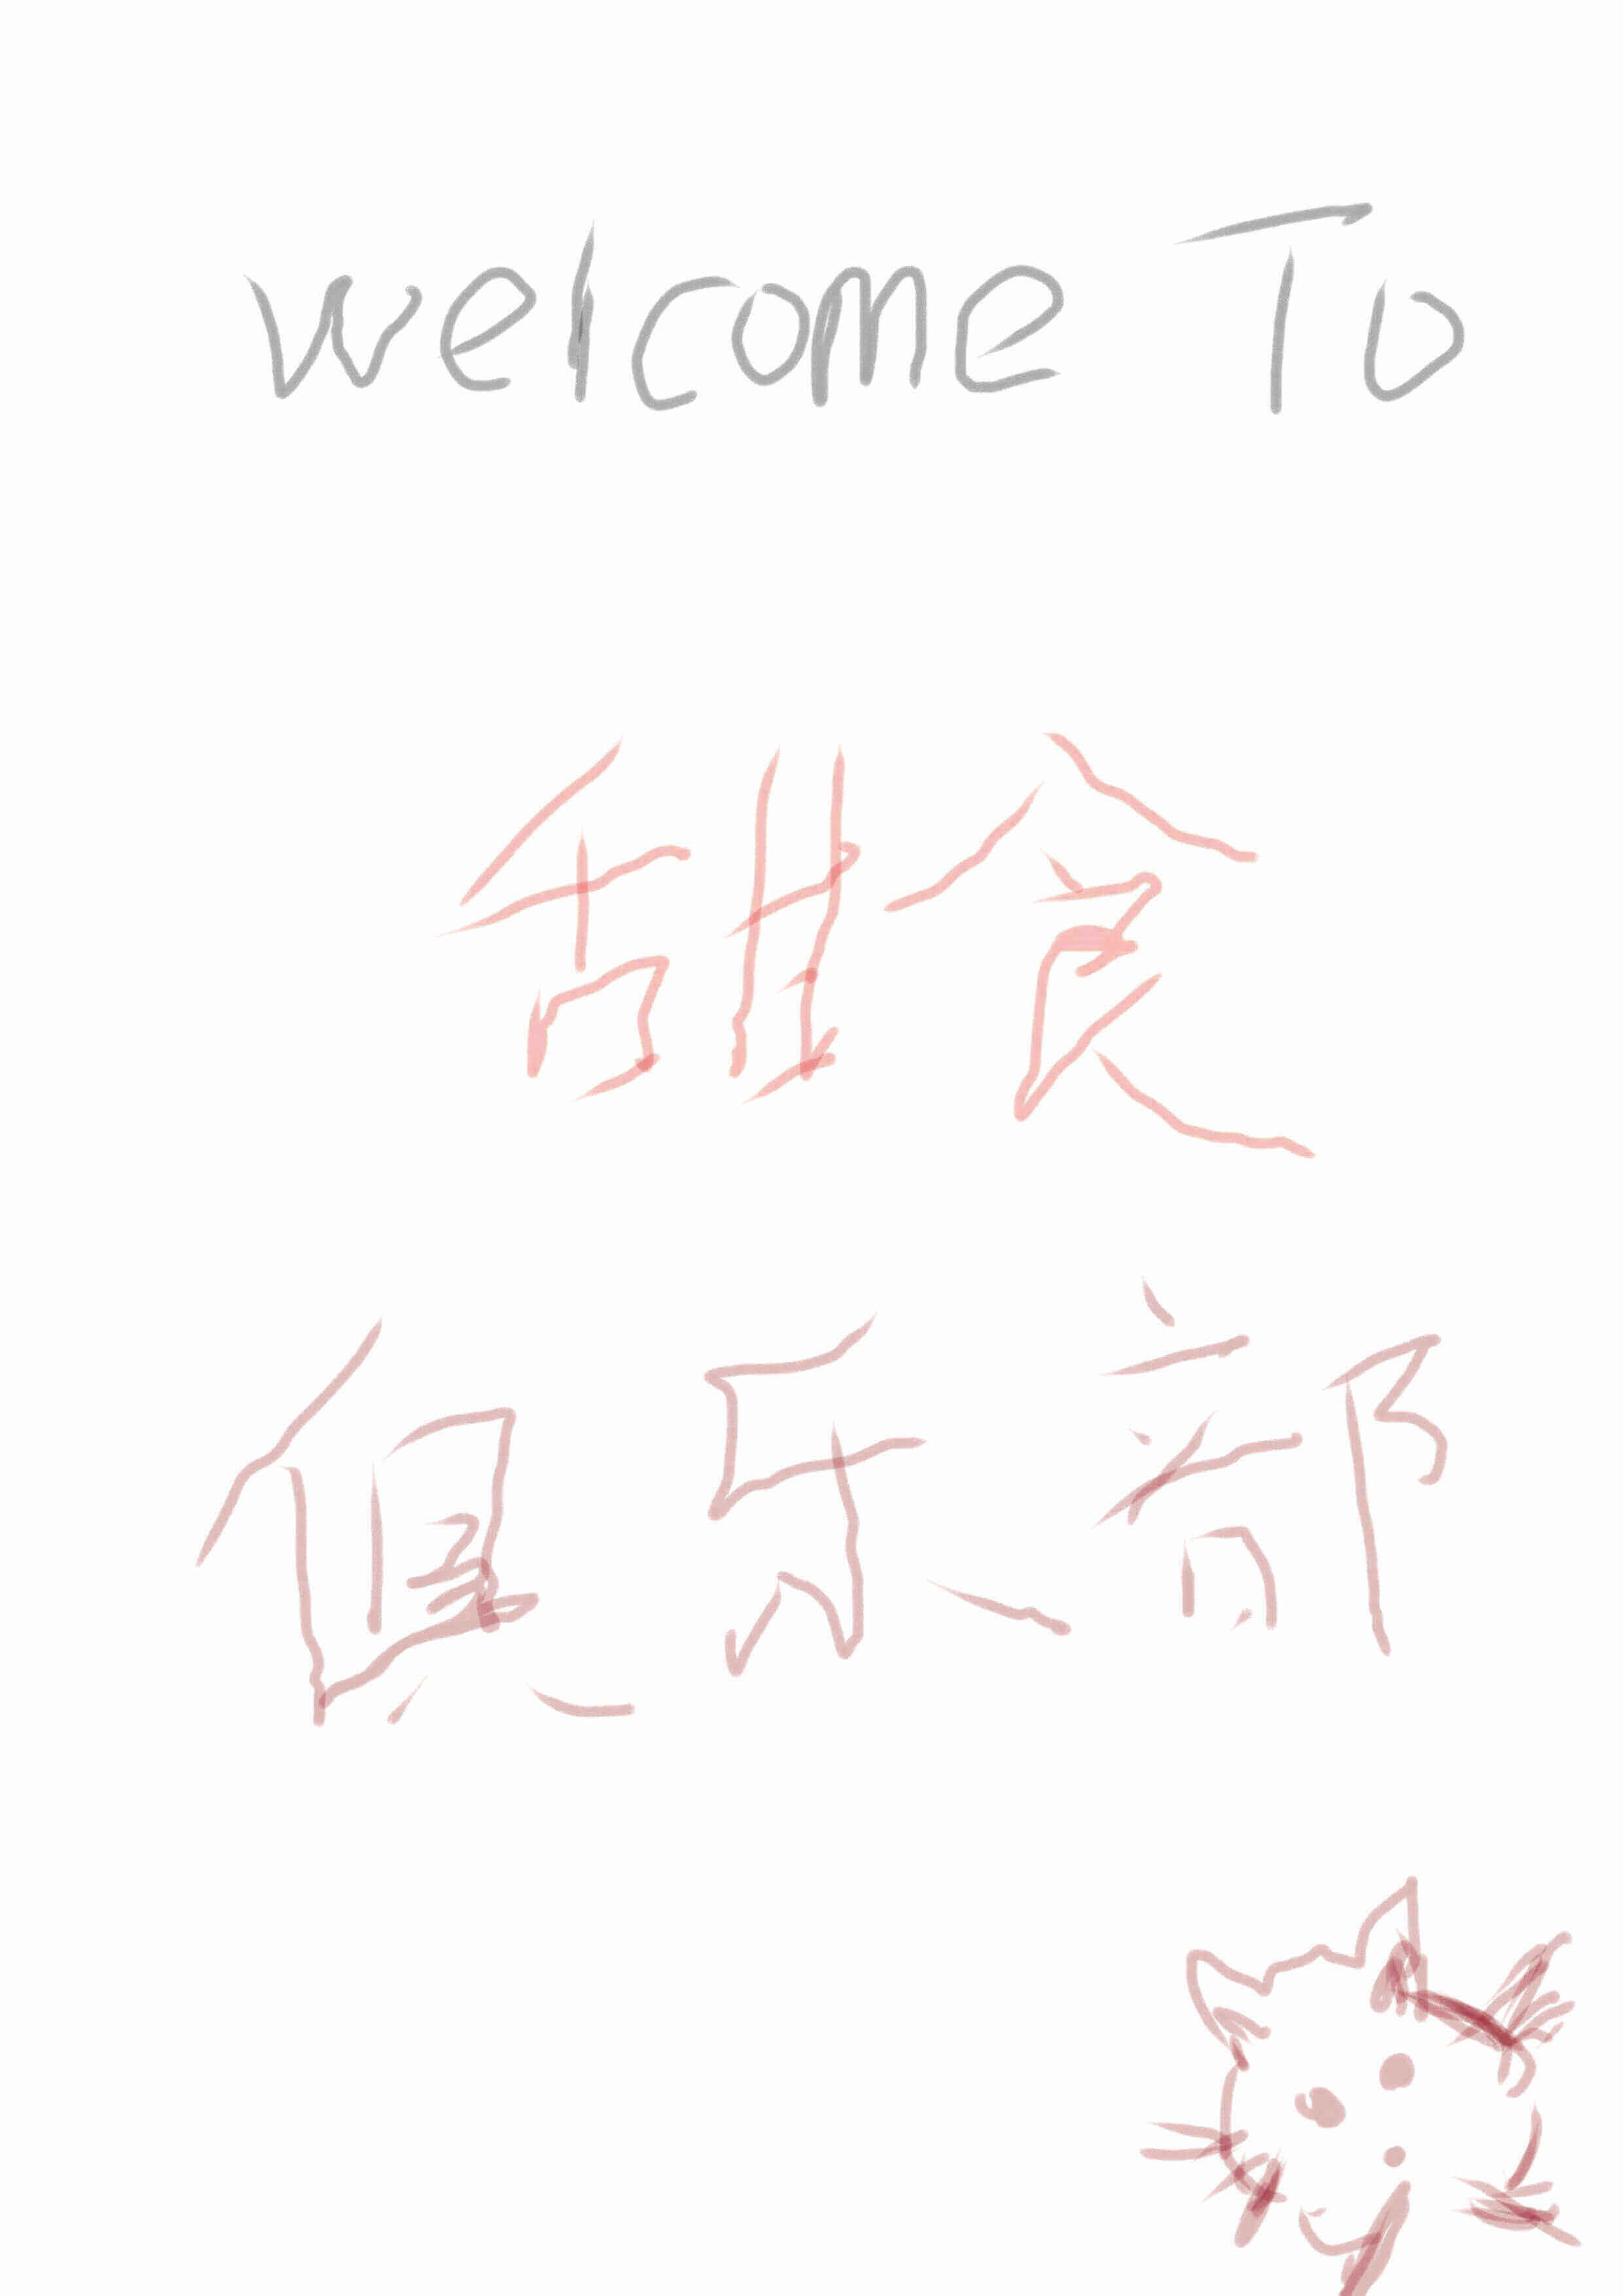 welcome To
甜食
俱乐部